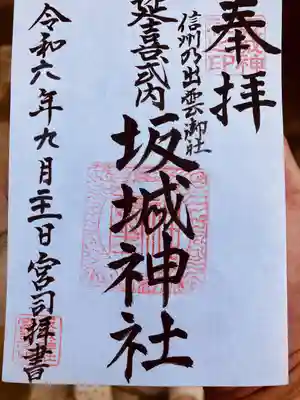 奉拝
信州乃出雲御社
延喜式内
坂城神社
令和六年九月 日
宮司拝書